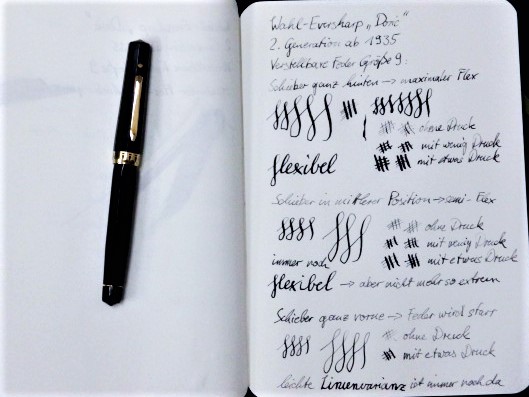 Wahl-Eversharp „Doric"
2. Generation ab 1935
Verstellbare Feder Größe 9:
Schieber ganz hinten → maximaler Flex
ohne Druck
mit wenig Druck
flexibel mit etwas Druck
Schieber in mittlerer Position → semi-Flex
ohne Druck
mit wenig Druck
immer noch mit etwas Druck
flexibel → aber nicht mehr so extrem
Schieber ganz vorne → Feder wird starr
ohne Druck
mit etwas Druck
leichte Linienvarianz ist immer noch da